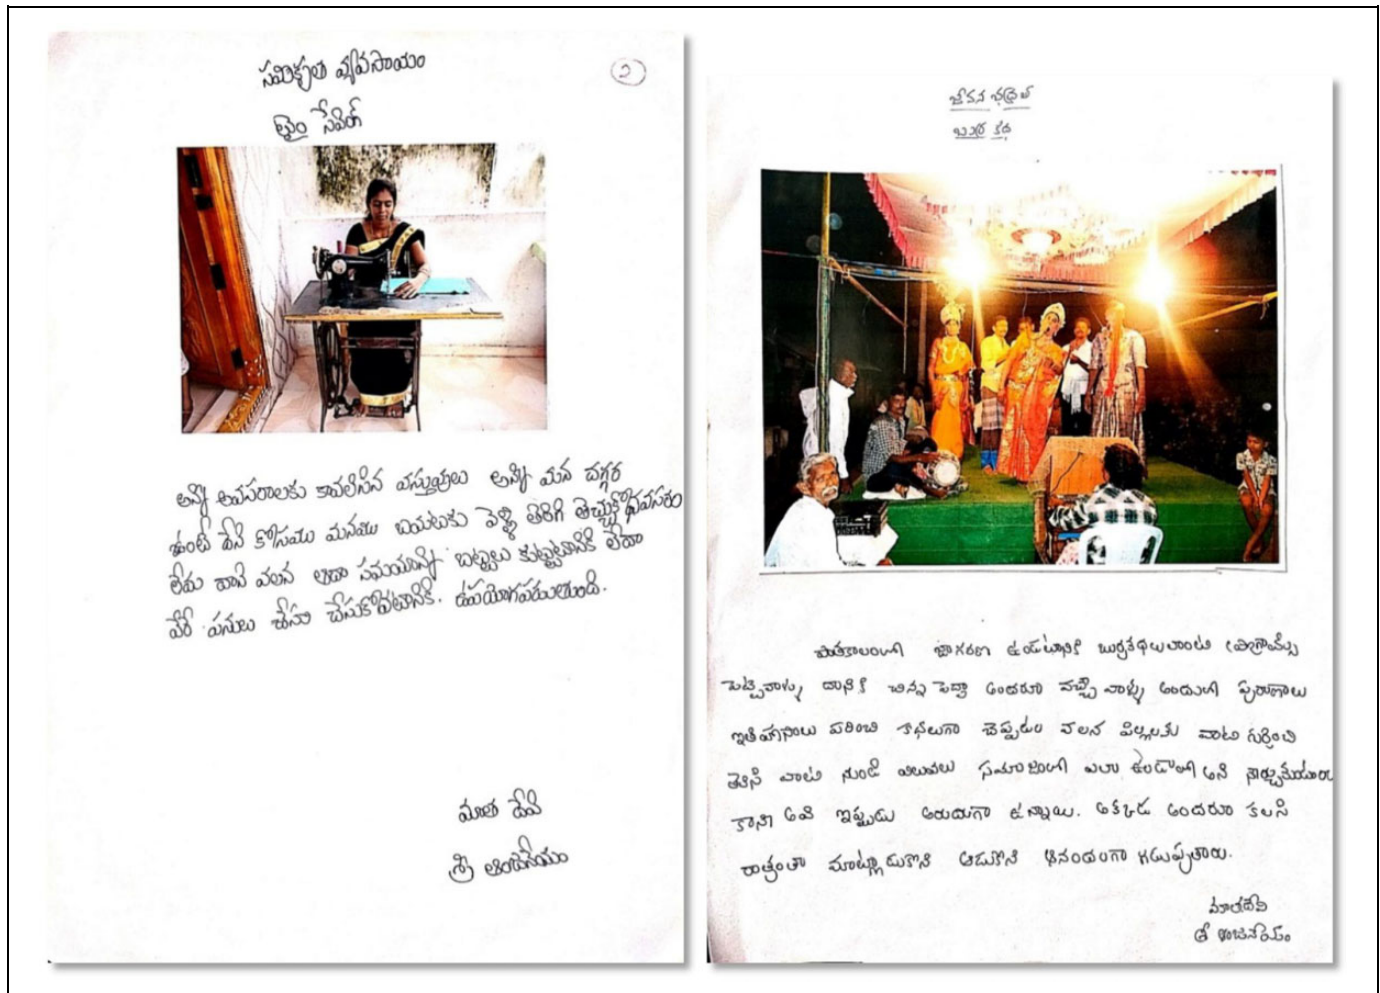 సమీకృత వ్యవసాయం
2
టైం సేవింగ్
అన్ని అవసరాలకు కావలసిన వస్తువులు అన్ని మన దగ్గర
ఉంటే దేని కోసము మనము బయటకు వెళ్ళి తిరిగి తెచ్చుకోనవసరం
లేదు దాని వలన ఆదా సమయాన్ని బట్టలు కుట్టటానికి లేదా
వేరే పనులు చేసు చేసుకోవటానికి. ఉపయోగపడుతుంది.
మాత దేవి
శ్రీ ఆంజనేయం
జీవన
బుర్ర కథ
పాతకాలంలో జాగరణ ఉండటానికి బుర్రకథలులాంటి ప్రోగ్రామ్స్
పెట్టేవాళ్ళు దానికి చిన్న పెద్దా అందరూ వచ్చే వాళ్ళు అందులో పురాణాలు
ఇతిహాసాలు గురించి కాథలుగా చెప్పడం వలన పిల్లలకు వాటి గుర్రించి
తెలిసి వాటి నుండి విలువలు సమాజంలో ఎలా ఉండాలో అని
కాని అవి ఇప్పుడు అరుదుగా ఉన్నాయి. అక్కడ అందరూ కలసి
రాత్రంతా మాట్లాడుకొని ఆడుకొని ఆనందంగా గడుపుతారు.
మాతదేవి
శ్రీ ఆంజనేయం